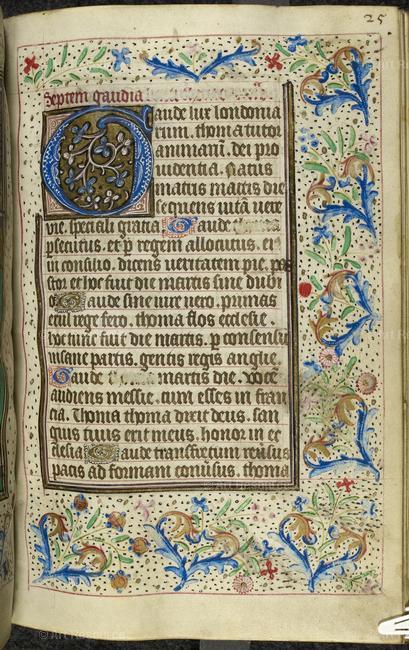 25
Septem gaudia
Gaude lux londonia
rum. thoma tutor
animarum. dei pro
uidentia. Natus
matris martis die
sequens uitam uere
vie. speciali gratia Gaude
psecutus. et p regem allocutus. et
in consilio. dicens ueritatem pie. pas
tor et hoc fuit die martis sine dubi
o Gaude sine iure uero. primas
exul rege fero. thoma flos ecclesie.
hoc tunc fuit die martis. p consensu
insane partis. gentis regis anglie.
Gaude martis die. voce
audiens messie. cum esses in fran
cia. Thoma thoma dixit deus. san
guis tuus erit meus. honor in ec
clesia Gaude transfretum reuisus
pacis ad formam conuisus. thoma